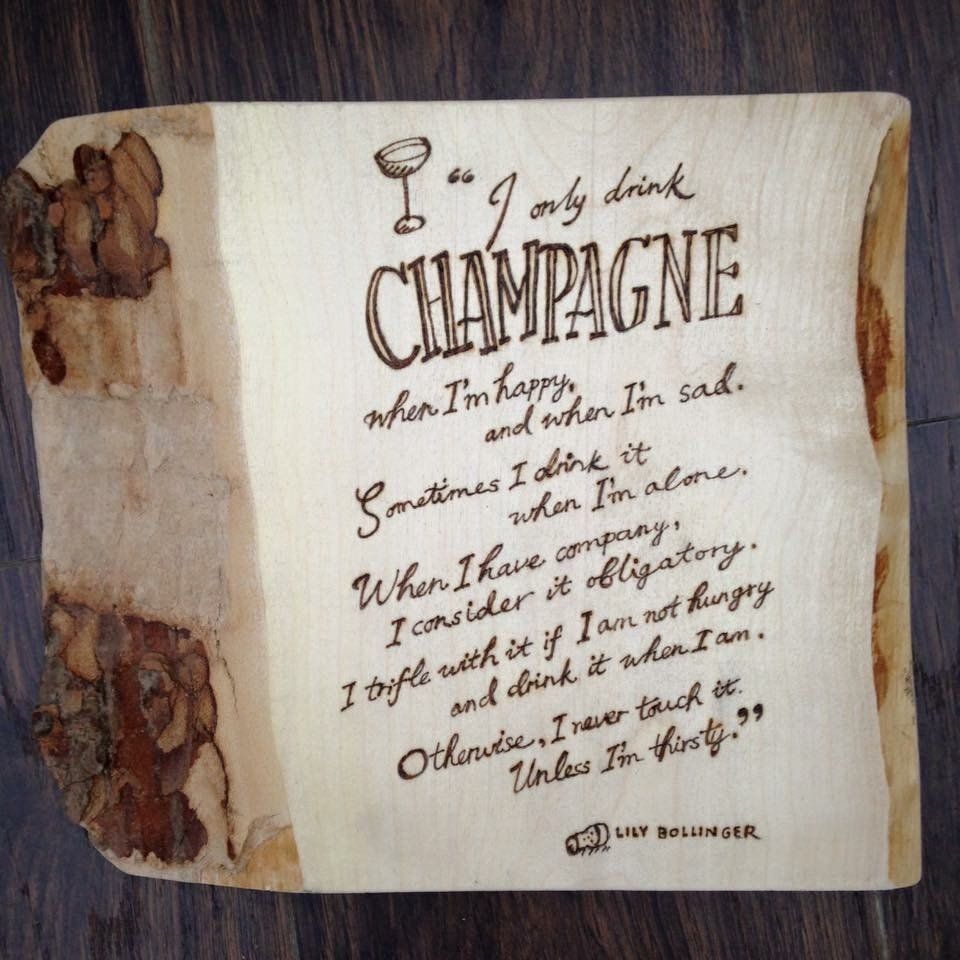 “ I only drink
CHAMPAGNE
when I'm happy,
and when I'm sad.
Sometimes I drink it
when I'm alone.
When I have company,
I consider it obligatory.
I trifle with it if I am not hungry
and drink it when I am.
Otherwise, I never touch it.
Unless I'm thirsty.”
LILY BOLLINGER